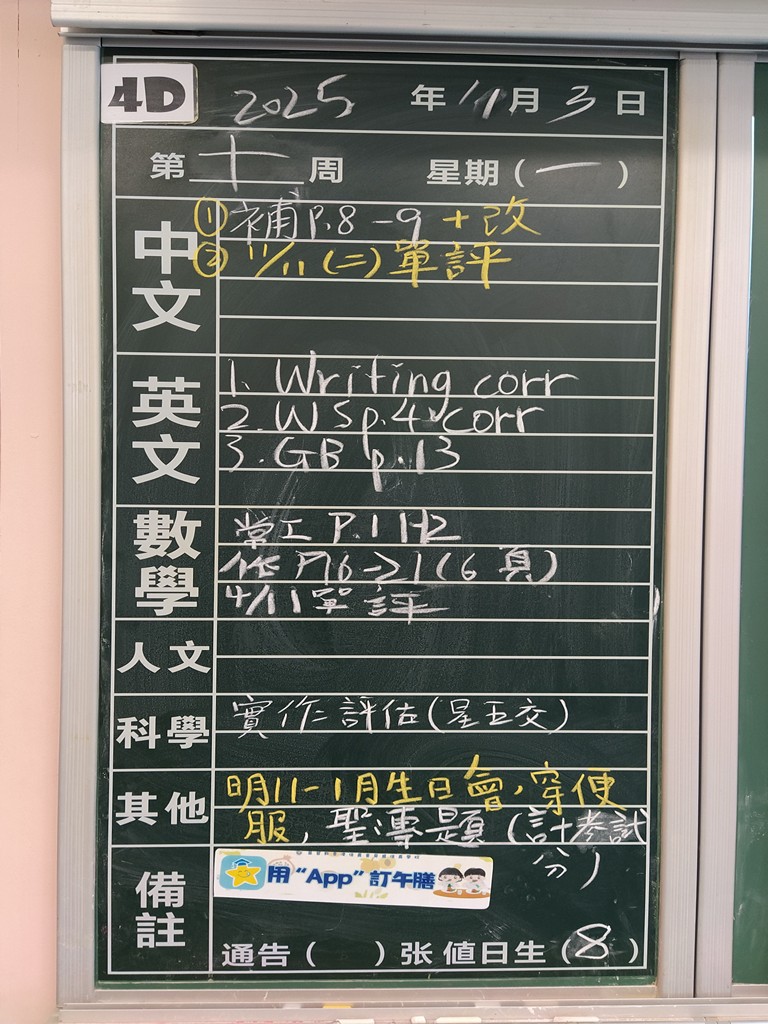 4D
2025 年 11 月 3 日
第 十 周 星期 ( 一 )
中文
① 補 P.8 - 9 + 改
② 11/11 (二) 單評
英文
1. Writing corr
2. WS p.4 corr
3. GB p.13
數學
常工 P.1 1-2
作 P.16 - 21 (6 頁)
4/11 單評
人文
科學
實作評估 (星五交)
其他
明11-1月生日會，穿便
服，聖專題 (計考試
分)
備註
用 “App” 訂午膳
通告 ( ) 张 值日生 (8)